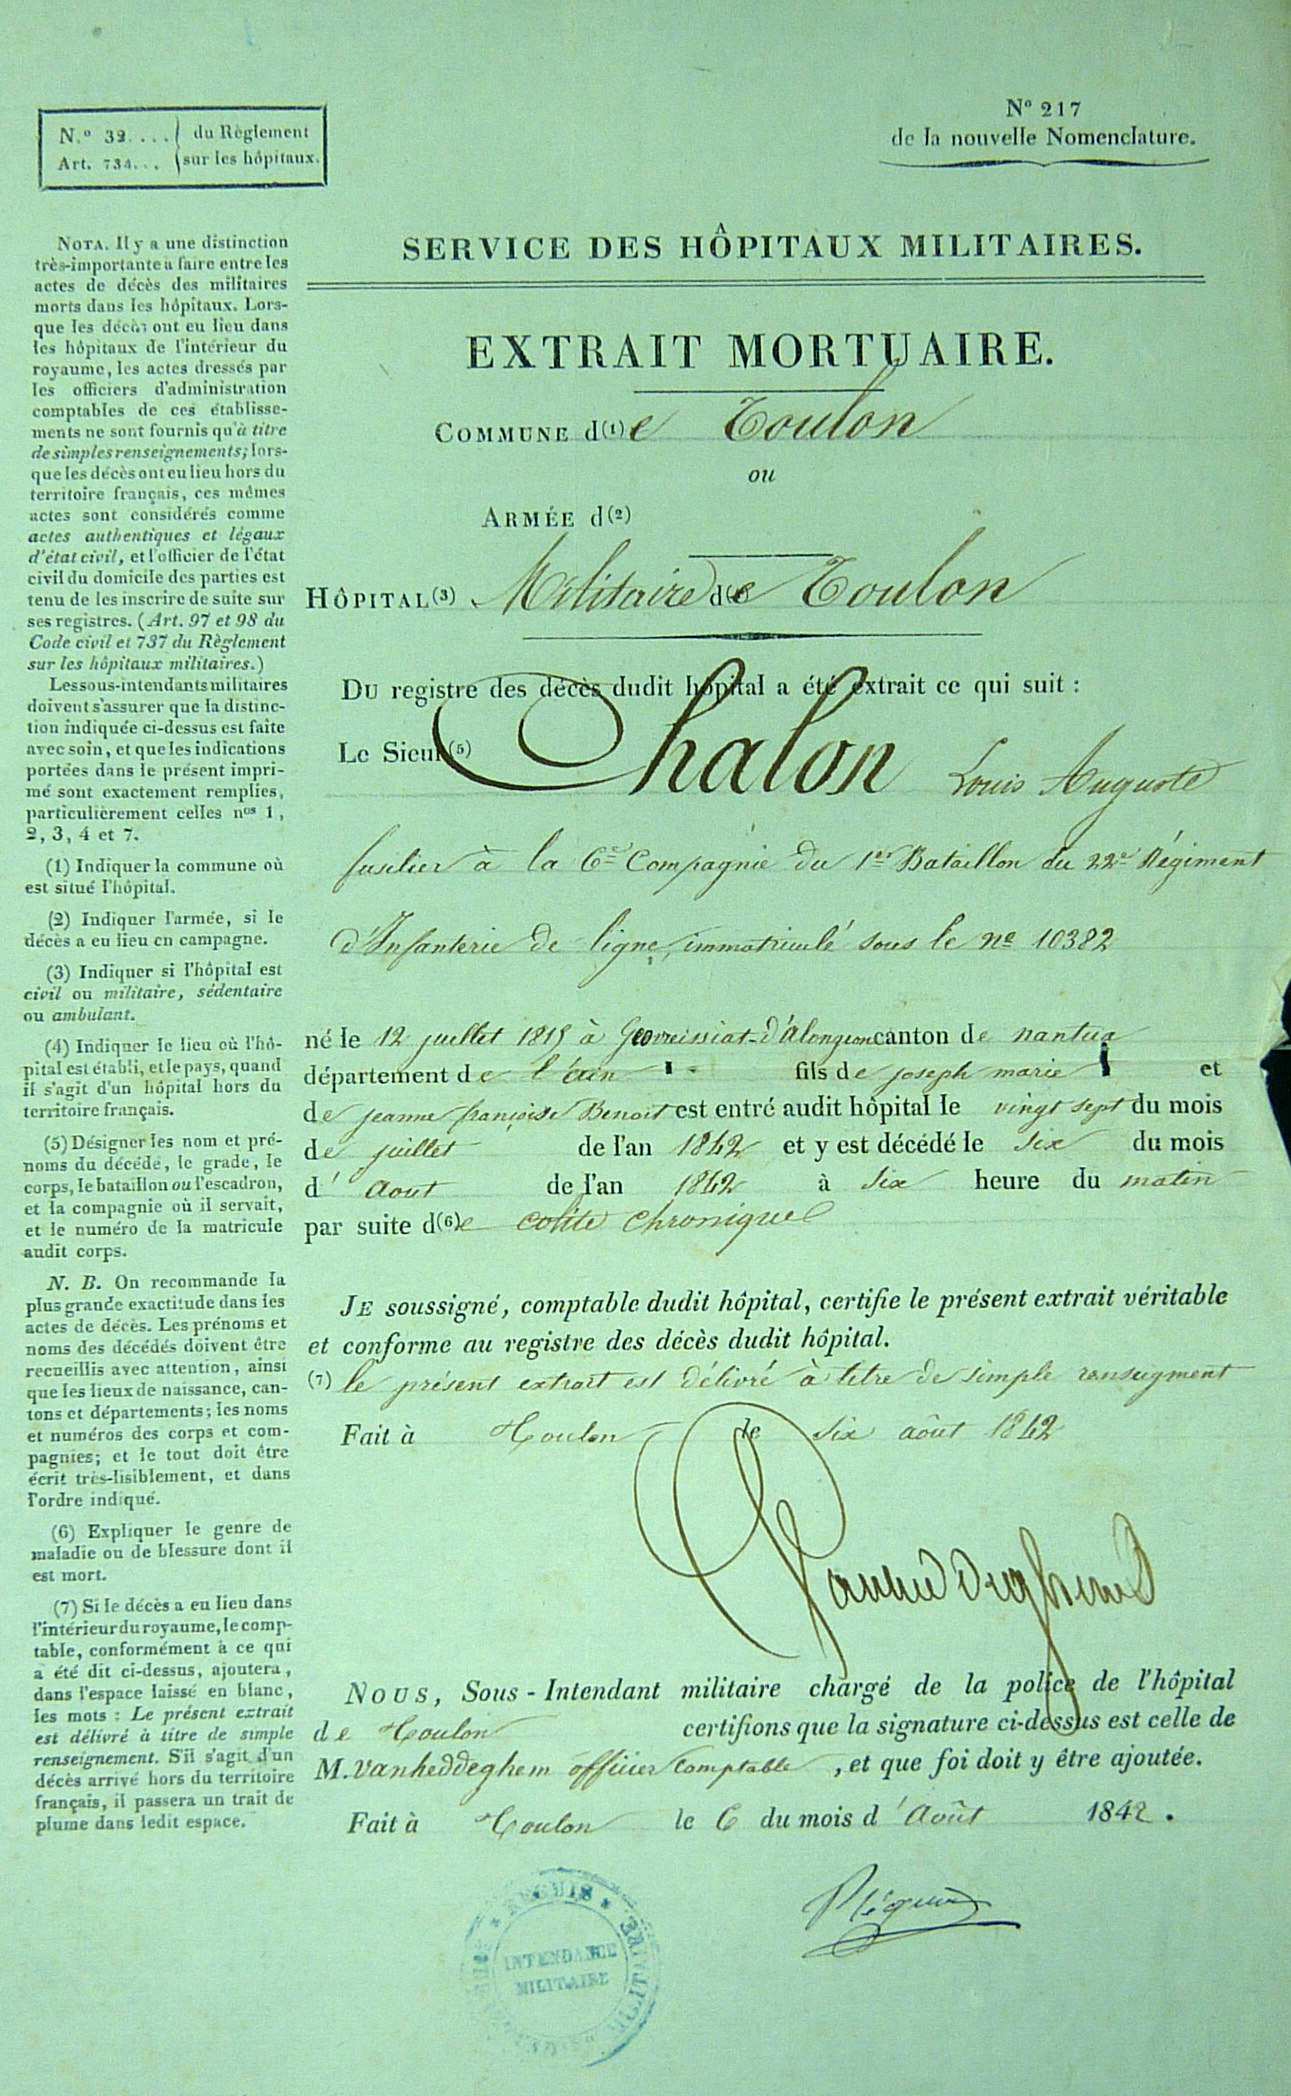 N.º 32.... du Règlement
Art. 734... sur les hôpitaux.
Nº 217
de la nouvelle Nomenclature.
SERVICE DES HÔPITAUX MILITAIRES.
EXTRAIT MORTUAIRE.
COMMUNE d(1)e Toulon
ou
ARMÉE d(2)
HÔPITAL(3) Militaire d(4)e Toulon
Du registre des décès dudit hôpital a été extrait ce qui suit :
Le Sieur(5) Chalon Louis Auguste
fusilier à la 6e Compagnie du 1er Bataillon du 22e Régiment
d'Infanterie de ligne, immatriculé sous le nº 10382
né le 12 juillet 1819 à Geovreissiat-d'alongeon canton de nantua
département de l'ain fils de joseph marie et
de jeanne françoise Benoit est entré audit hôpital le vingt sept du mois
de juillet de l'an 1842 et y est décédé le six du mois
d'aout de l'an 1842 à six heure du matin
par suite d(6)e colite chronique
JE soussigné, comptable dudit hôpital, certifie le présent extrait véritable
et conforme au registre des décès dudit hôpital.
(7) le présent extrait est délivré à titre de simple renseigment
Fait à Toulon le six août 1842
Vanheddeghem
NOUS, Sous-Intendant militaire chargé de la police de l'hôpital
de Toulon certifions que la signature ci-dessus est celle de
M. Vanheddeghem officier comptable, et que foi doit y être ajoutée.
Fait à Toulon le 6 du mois d'Août 1842.
INTENDANCE
MILITAIRE
NOTA. Il y a une distinction
très-importante à faire entre les
actes de décès des militaires
morts dans les hôpitaux. Lors-
que les décès ont eu lieu dans
les hôpitaux de l'intérieur du
royaume, les actes dressés par
les officiers d'administration
comptables de ces établisse-
ments ne sont fournis qu'à titre
de simples renseignements; lors-
que les décès ont eu lieu hors du
territoire français, ces mêmes
actes sont considérés comme
actes authentiques et légaux
d'état civil, et l'officier de l'état
civil du domicile des parties est
tenu de les inscrire de suite sur
ses registres. (Art. 97 et 98 du
Code civil et 737 du Règlement
sur les hôpitaux militaires.)
Les sous-intendants militaires
doivent s'assurer que la distinc-
tion indiquée ci-dessus est faite
avec soin, et que les indications
portées dans le présent impri-
mé sont exactement remplies,
particulièrement celles nos 1,
2, 3, 4 et 7.
(1) Indiquer la commune où
est situé l'hôpital.
(2) Indiquer l'armée, si le
décès a eu lieu en campagne.
(3) Indiquer si l'hôpital est
civil ou militaire, sédentaire
ou ambulant.
(4) Indiquer le lieu où l'hô-
pital est établi, et le pays, quand
il s'agit d'un hôpital hors du
territoire français.
(5) Désigner les nom et pré-
noms du décédé, le grade, le
corps, le bataillon ou l'escadron,
et la compagnie où il servait,
et le numéro de la matricule
audit corps.
N. B. On recommande la
plus grande exactitude dans les
actes de décès. Les prénoms et
noms des décédés doivent être
recueillis avec attention, ainsi
que les lieux de naissance, can-
tons et départements; les noms
et numéros des corps et com-
pagnies; et le tout doit être
écrit très-lisiblement, et dans
l'ordre indiqué.
(6) Expliquer le genre de
maladie ou de blessure dont il
est mort.
(7) Si le décès a eu lieu dans
l'intérieur du royaume, le comp-
table, conformément à ce qui
a été dit ci-dessus, ajoutera,
dans l'espace laissé en blanc,
les mots : Le présent extrait
est délivré à titre de simple
renseignement. S'il s'agit d'un
décès arrivé hors du territoire
français, il passera un trait de
plume dans ledit espace.